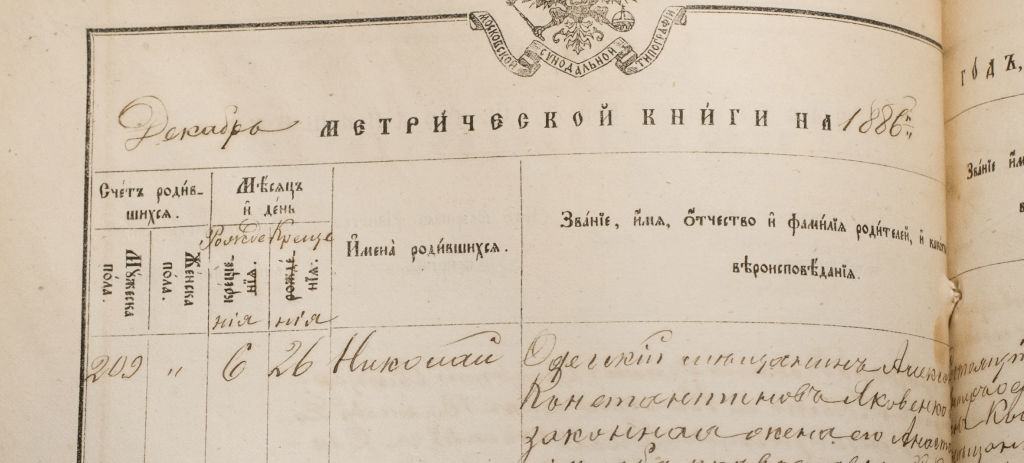 МОСКОВСКОЙ СѴНОДАЛЬНОЙ ТИПОГРАФІИ
Декабрь МЕТРИ́ЧЕСКОЙ КНИ́ГИ НА 1886й
ГО́ДЪ,
Сче́тъ роди́в-
шихся.
Мѣ́сяцъ
и҆ де́нь
И҆мена̀ роди́вшихся.
Зва́нїе, и҆́мя, ѻ҆́тчество и҆ фами́лїя роди́телей, и҆ како́го
вѣроисповѣ́данїя.
Зва́нїе и҆́мя
Мꙋ́жеска
по́ла.
Же́нска
по́ла.
Рожде
креще́-
нїѧ.
нія
Креще
рожде́-
нїѧ.
нія
209 " 6 26 Николай
Одесскій мещанинъ
Константиновъ Яковенко
законная жена его